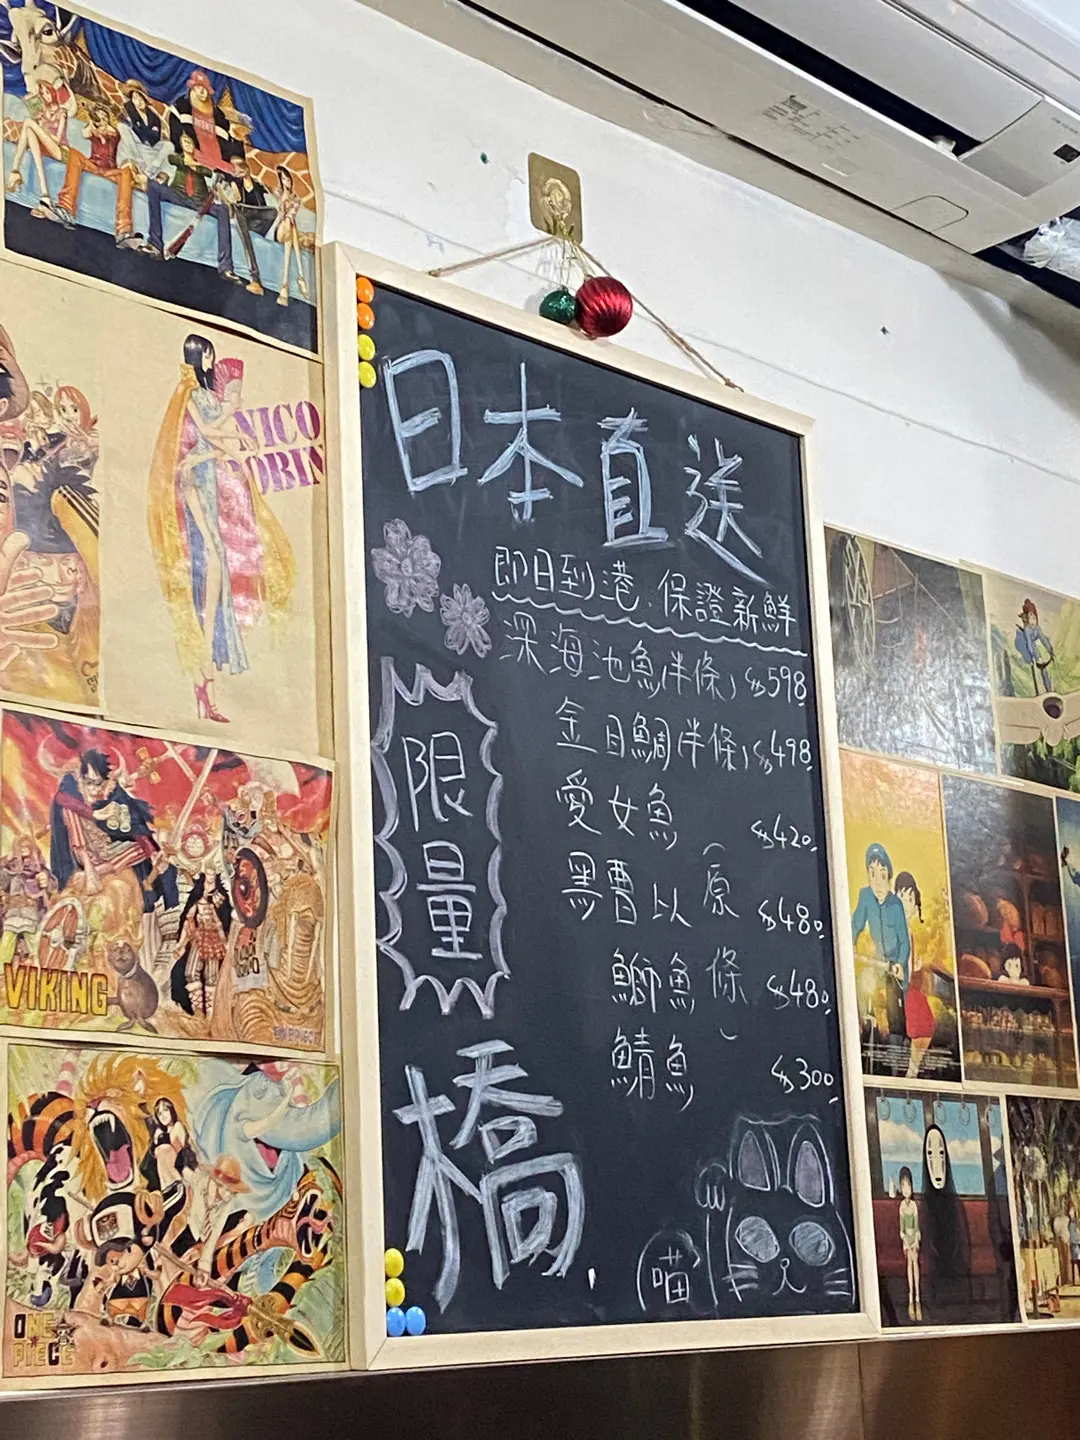 日本直送
即日到港.保證新鮮
深海池魚(半條) $598
金目鯛(半條) $498
愛女魚 $420
黑曹以 $480
鰤魚 $480
鯖魚 $300
(原條)
限量
橋
喵
NICO
ROBIN
VIKING
ONE
PIECE